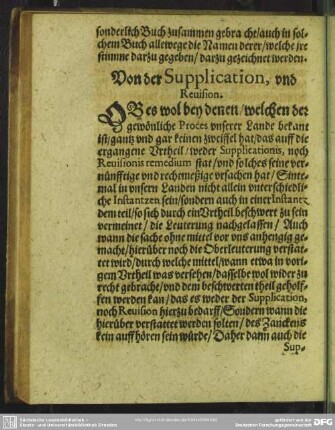 sonderlich Buch zusammen gebracht/auch in sol-
chem Buch allewege die Namen derer/welche jre
stimme darzu gegeben/darzu gezeichnet werden.
Von der Supplication, vnd
Reuision.
OB es wol bey denen/welchen der
gewönliche Proces vnserer Lande bekant
ist/gantz vnd gar keinen zweiffel hat/das auff die
ergangene Vrtheil/weder Supplicationis, noch
Reuisionis remedium stat/vnd solches seine ver-
nünfftige vnd rechtmeßige vrsachen hat/Sinte-
mal in vnsern Landen nicht allein vnterschiedli-
che Instantzen sein/sondern auch in einer Instantz
dem teil/so sich durch ein Vrtheil beschwert zu sein
vermeinet/die Leuterung nachgelassen/Auch
wann die sache ohne mittel vor vns anhengig ge-
macht/hierüber noch die Oberleuterung verstat-
tet wird/durch welche mittel/wann etwa in vori-
gem Vrtheil was versehen/dasselbe wol wider zu
recht gebracht/vnd dem beschwerten theil geholf-
fen werden kan/das es weder der Supplication,
noch Reuision hierzu bedarff/Sondern wann die
hierüber verstattet werden solten/des Zanckens
kein auffhören sein würde/Daher dann auch die
Sup-